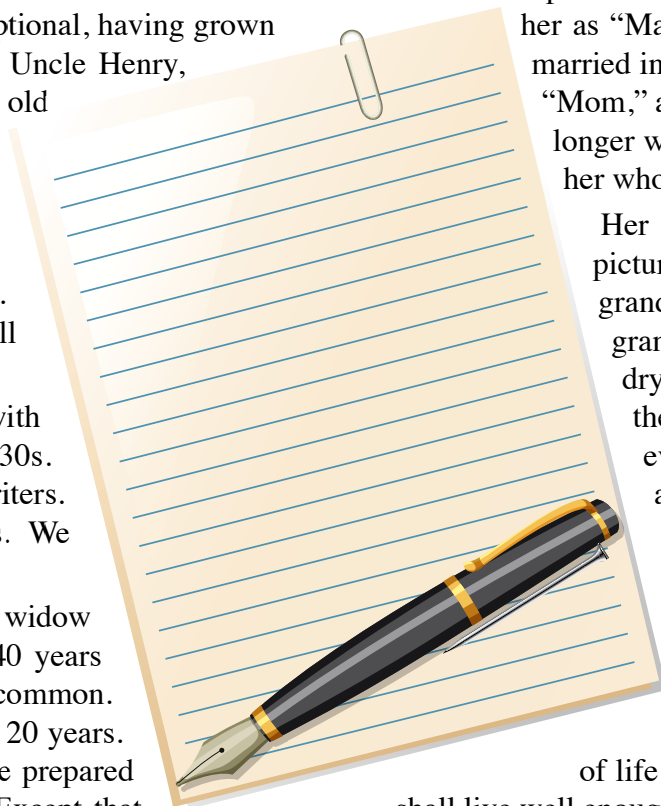 ptional, having grown
Uncle Henry,
old
.
ll
with
30s.
riters.
s. We
widow
40 years
common.
20 years.
e prepared
Except that
her as “Ma
married in
“Mom,” a
longer w
her who
Her
pictur
grand
gran
dry
the
ev
a
of life
shall live well enoug